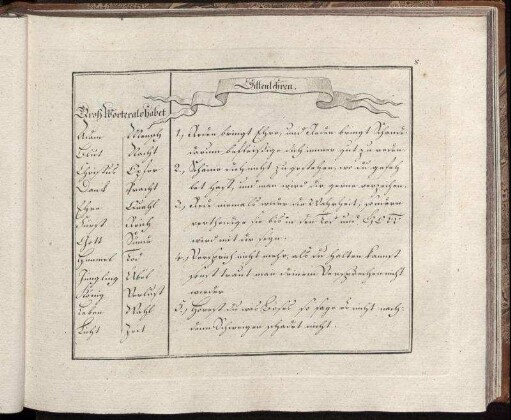 8
Sittenlehren.
Groß Wörteralphabet
Aum Mensch
Blut Nacht
Christus Opfer
Dank Pracht
Ehre Quahl
Furst Reich
Gott Sonn
Himmel Tod
Jungling Übel
König Verlust
Leben Wahl
Licht Zeit
1., Reden bringt Ehre, und Reden bringt Schand
darum befleissige dich immer gut zu reden
2., Schäme dich nicht zu gestehen, wo du gefehlt
hast, und man wird dir gerne verzeihen.
3., Rede niemals wider die Wahrheit, sondern
vertheidige sie bis in den Tod und GOTT
wird mit dir seyn.
4., Versprich nicht mehr, als du halten kannst
sonst traut man deinem Versprechen nicht
wieder
5., Hörest du was Böses so sage es nicht nach
denn Schweigen schadet nicht.